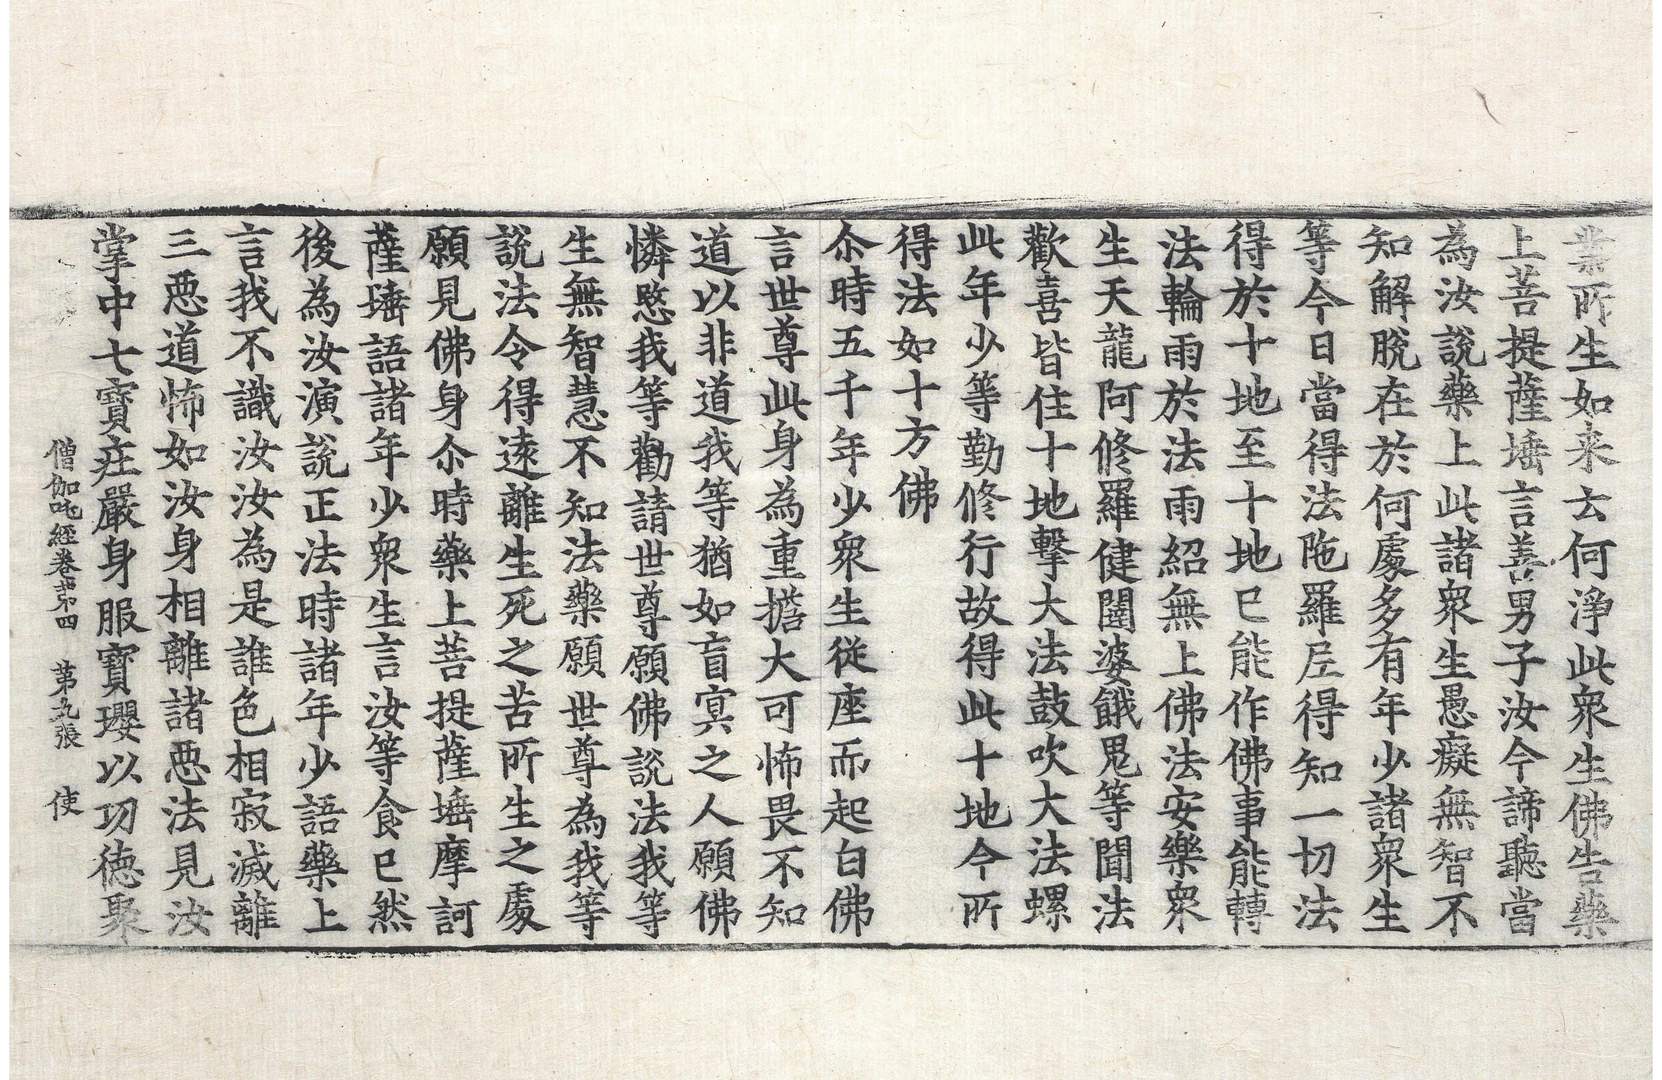 業所生如来云何淨此衆生佛告藥
上菩提薩埵言善男子汝今諦聽當
為汝說藥上此諸衆生愚癡無智不
知解脫在於何處多有年少諸衆生
等今日當得法陁羅尼得知一切法
得於十地至十地已能作佛事能轉
法輪雨於法雨紹無上佛法安樂衆
生天龍阿修羅健闥婆餓鬼等聞法
歡喜皆住十地擊大法鼓吹大法螺
此年少等勤修行故得此十地今所
得法如十方佛
尒時五千年少衆生從座而起白佛
言世尊此身為重擔大可怖畏不知
道以非道我等猶如盲冥之人願佛
憐愍我等勸請世尊願佛說法我等
生無智慧不知法藥願世尊為我等
說法令得遠離生死之苦所生之處
願見佛身尒時藥上菩提薩埵摩訶
薩埵語諸年少衆生言汝等食已然
後為汝演說正法時諸年少語藥上
言我不識汝汝為是誰色相寂滅離
三惡道怖如汝身相離諸惡法見汝
掌中七寶庄嚴身服寶瓔以功德聚
僧伽吒經卷苐四 第九張 使